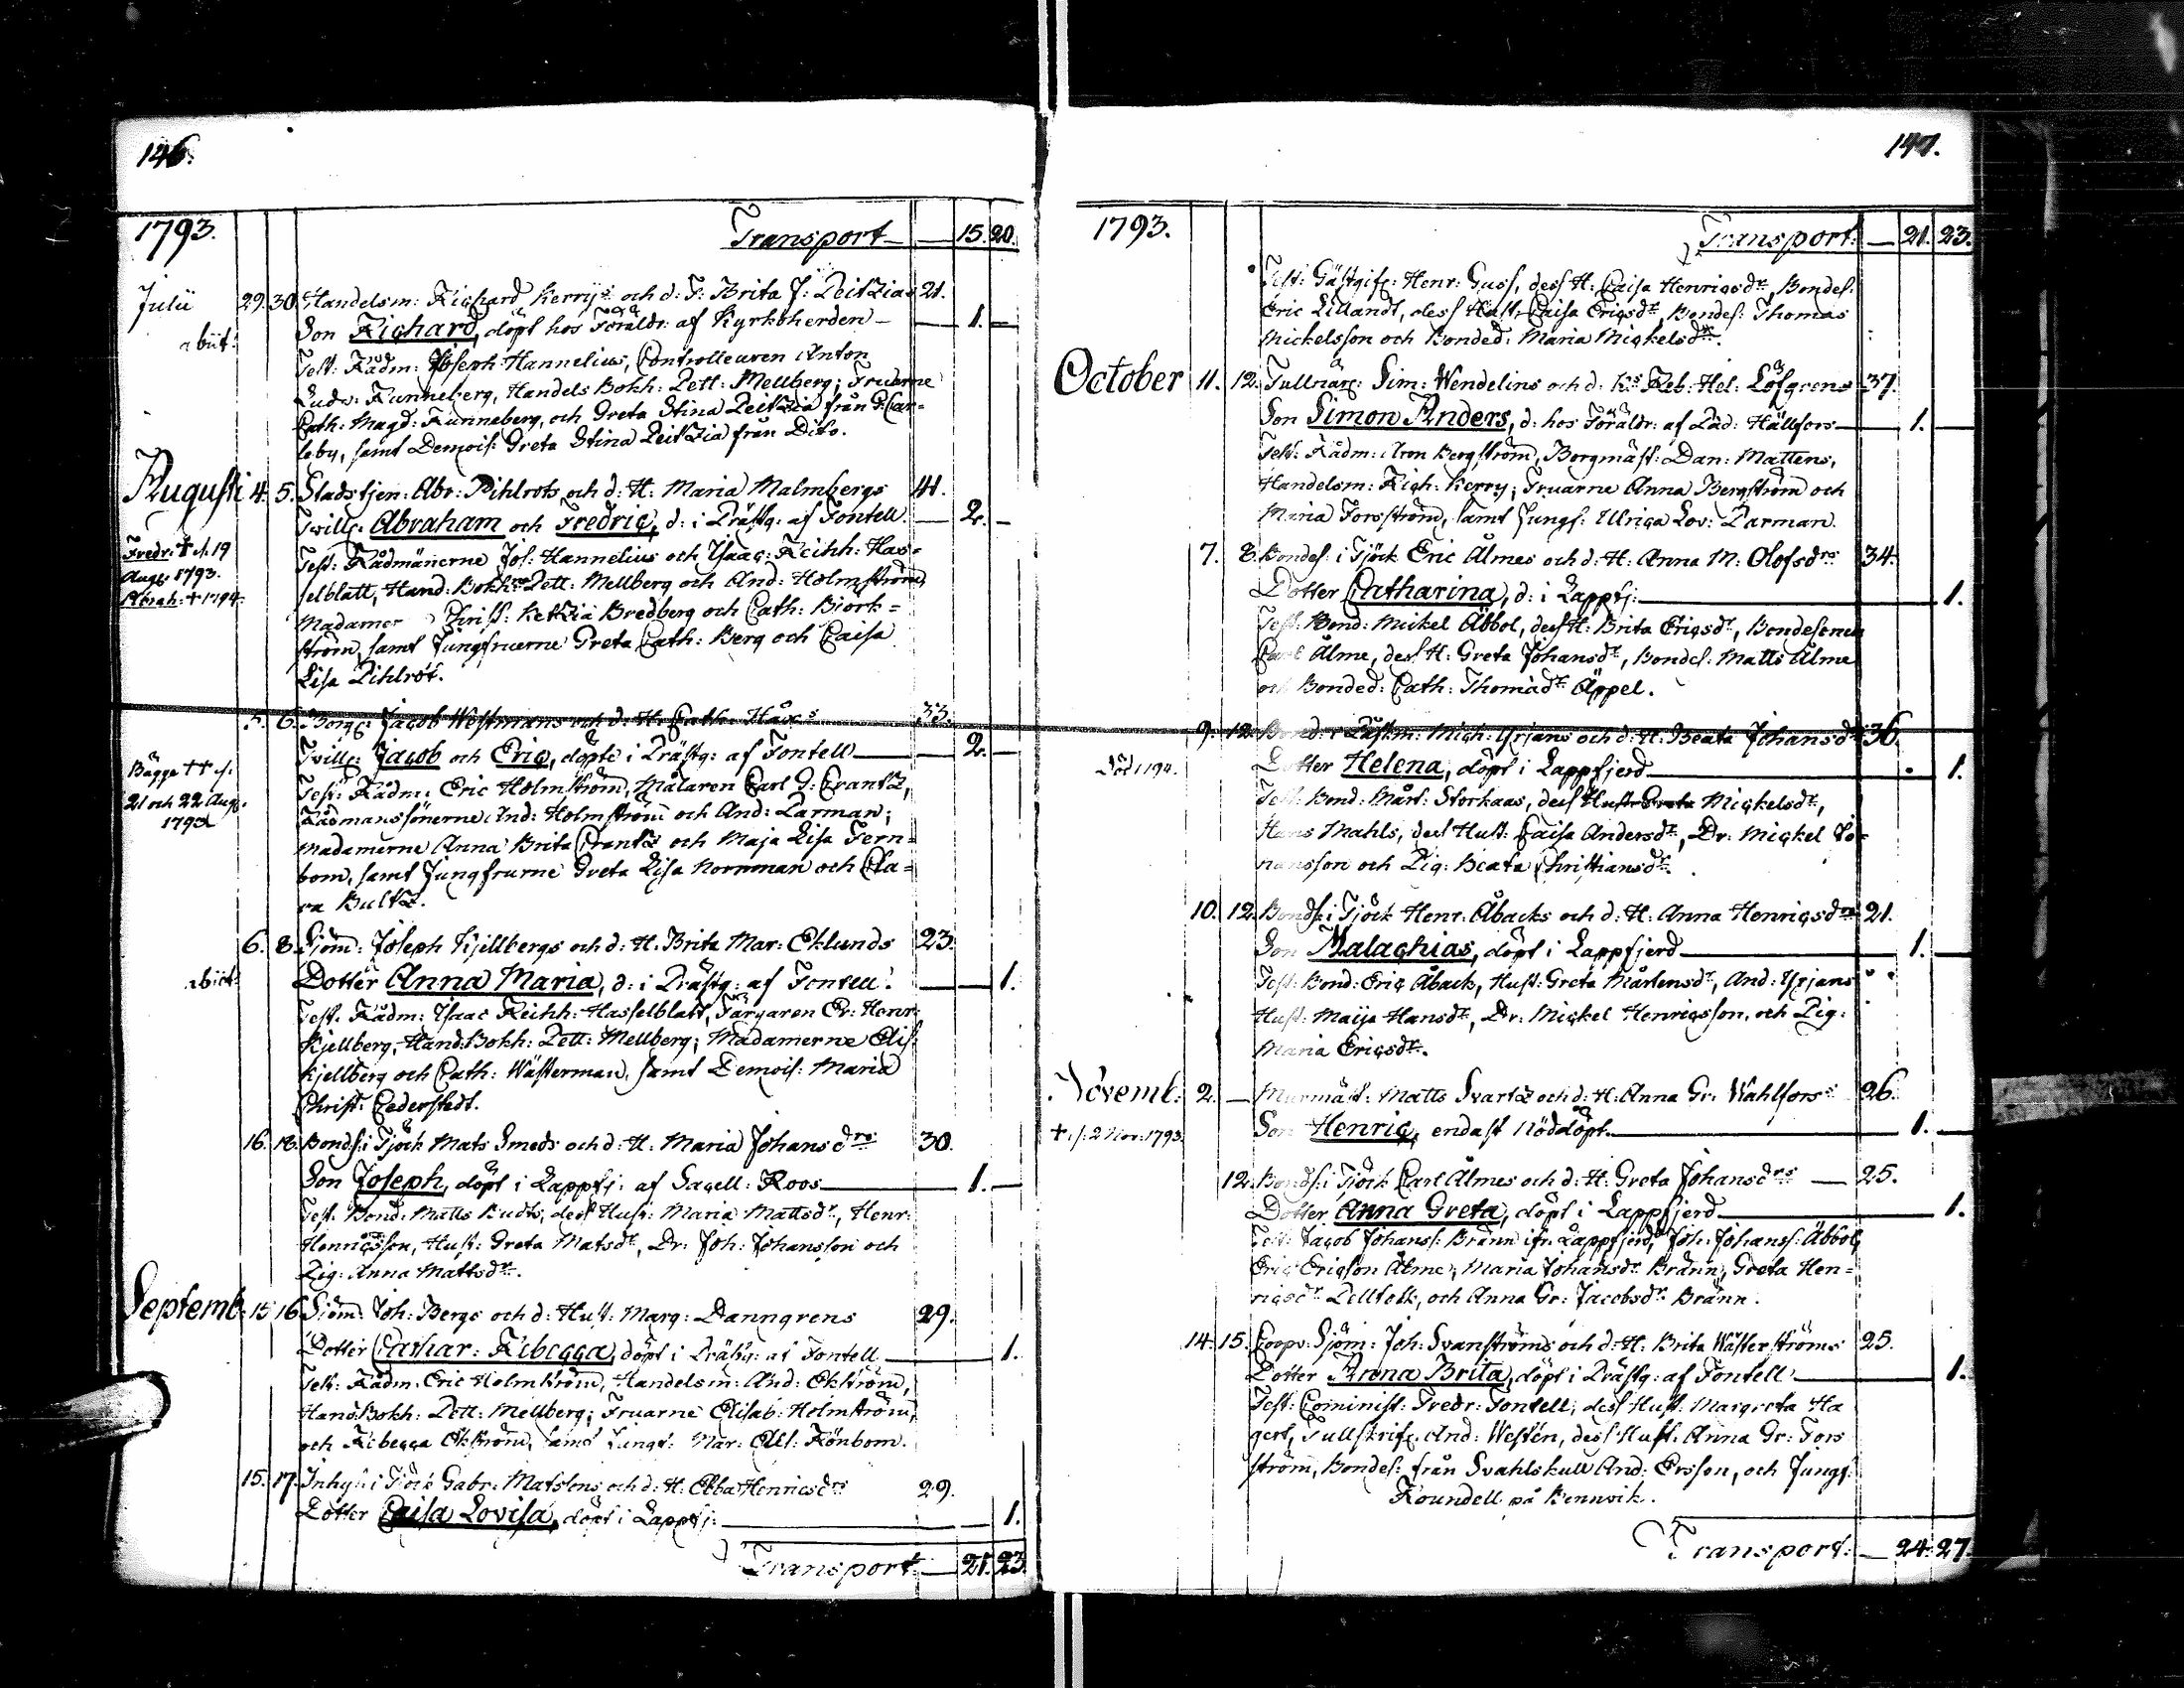 146.
1793. Transport — 15. 20.
Julii 29. 30. Handelsm: Richard Kerrys och d: F: Brita J: Zeitzias 21.
abiit: Son Richard, döpt hos Föräldr: af Kyrkoherden — 1. —
Test: Rådm: Joseph Hannelius, Controlleuren Anton
Ludv: Runneberg, Handels Bokh: Pett: Mellberg; Fruerne
Cath: Magd: Runneberg, och Greta Stina Zeitzia från G. Car=
leby, samt Demois: Greta Stina Zeitzia från Dito.
Augusti 4. 5. Stadstjen: Abr: Pihlrots och d: H: Maria Malmbergs 41.
Twill: Abraham och Fredric, d: i Prästg: af Fontell. — 2. —
Fredr: † d. 19
Aug: 1793.
Abrah: † 1794.
Test: Rådmänerne Jos: Hannelius och Isaac: Reinh: Has=
selblatt, Hand: Bokh: Pett: Mellberg och And: Holmström,
Madamer Christ: Ketzia Bredberg och Cath: Björk=
ström, samt Jungfruerne Greta Cath: Berg och Caisa
Lisa Pihlrot.
5. 6. Borg: Jacob Westmans och d: H: Cath: Håårs 33.
Twill: Jacob och Eric, döpte i Prästg: af Fontell — 2. —
Bägge †† d.
21 och 22 Aug:
1793
Test: Rådm: Eric Holmström, Målaren Carl G: Crantz,
Rådmanssönerne And: Holmström och And: Parman;
Madamerne Anna Brita Crantz och Maja Lisa Fern=
bom, samt Jungfrurne Greta Lisa Norrman och Cla=
ra Bultz.
6. 8. Sjöm: Joseph Kjellbergs och d: H: Brita Mar: Eklunds 23.
abiit: Dotter Anna Maria, d: i Prästg: af Fontell. — 1.
Test: Rådm: Isaac Reinh: Hasselblatt, Färgaren Er: Henr:
Kjellberg, Hand: Bokh: Pett: Mellberg; Madamerne Elis:
Kjellberg och Cath: Wästerman, samt Demois: Maria
Christ: Cederstedt.
16. 18. Bonds: i Tjöck Mats Smeds och d: H: Maria Johansdrs 30.
Son Joseph, döpt i Lappfj: af Sacell: Roos — 1. —
Test: Bond: Matts Buds, dess Hust: Maria Mattsdr, Henr:
Henricsson, Hust: Greta Matsdr, Dr: Joh: Johansson och
Pig: Anna Mattsdr.
Septemb: 15 16. Sjöm: Joh: Bergs och d: Hust: Marg: Danngrens 29.
Dotter Cathar: Rebecca, döpt i Prästg: af Fontell — 1.
Test: Rådm: Eric Holmström, Handelsm: And: Ekström,
Hand: Bokh: Pett: Mellberg; Fruarne Elisab: Holmström,
och Rebecca Ekström, samt Jungf: Mar: Elis: Rönbom.
15. 17. Inhys: i Tjöck Gabr: Matssons och d: H: Ebba Henricsdrs 29.
Dotter Caisa Lovisa, döpt i Lappfj: — 1.
Transport — 21. 23.
147.
1793. Transport: — 21. 23.
Test: Gästgif: Henr: Guss, dess H: Caisa Henricsdr, Bondes:
Eric Lillandt, dess Hust: Caisa Ericsdr, Bondes: Thomas
Mickelsson och Bonded: Maria Mickelsdr.
October 11. 12. Tullnär: Sim: Wendelins och d: Ks Reb: Hel: Löfgrens 37.
Son Simon Anders, d: hos Föräldr: af Päd: Hällfors — 1. —
Test: Rådm: Aron Bergström, Borgmäst: Dan: Mattens,
Handelsm: Rich: Kerry; Fruarne Anna Bergström och
Maria Forsström, samt Jungf: Ulrica Lov: Parman.
7. 8. Bondes: i Tjöck Eric Ålmes och d: H: Anna M: Olofsdrs 34.
Dotter Catharina, d: i Lappfj: — 1.
Test: Bond: Mickel Äbbol, dess H: Brita Ericsdr, Bondesonen
Carl Ålme, dess H: Greta Johansdr, Bondes: Matts Ålme
och Bonded: Cath: Thomædr Äppel.
9. 12. Bond: i Påskm: Mich: Yrjans och d: H: Beata Johansdrs 36.
Död 1794. Dotter Helena, döpt i Lappfjerd — 1.
Test: Bond: Mårt: Storkaas, dess Hust: Greta Mickelsdr,
Hans Mahls, dess Hust: Caisa Andersdr, Dr: Mickel Jo=
hansson och Pig: Beata Christiansdr.
10. 12. Bonds: i Tjöck Henr: Åbacks och d: H: Anna Henricsdrs 21.
Son Malachias, döpt i Lappfjerd — 1. —
Test: Bond: Eric Åback, Hust: Greta Mårtensdr, And: Yrjans
Hust: Maija Hansdr, Dr: Mickel Henricsson, och Pig:
Maria Ericsdr.
Novemb: 2. — Murmäst: Matts Svartz och d: H: Anna Gr: Wahlfors 26.
† d. 2 Nov: 1793. Son Henric, endast Nöddöpt. — 1. —
12. Bonds: i Tjöck Carl Ålmes och d: H: Greta Johansdrs — 25.
Dotter Anna Greta, döpt i Lappfjerd — 1.
Test: Jacob Johans: Bränn ifr: Lappfjerd, Joh: Johans: Äbbol,
Eric Ericson Ålme, Maria Johansdr Bränn, Greta Hen=
ricsdr Pellfolk, och Anna Gr: Jacobsdr Bränn.
14. 15. Coopv: Sjöm: Joh: Svanströms och d: H: Brita Wästerströms 25.
Dotter Anna Brita, döpt i Prästg: af Fontell — 1.
Test: Cominist: Fredr: Fontell, dess Hust: Margreta Ha
gert, Tullskrif: And: Westén, dess Hust: Anna Gr: Fors
ström, Bondes: från Svahlskull And: Ersson, och Jungf:
Roundell på Bennvik.
Transport: — 24. 27.